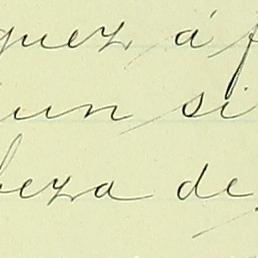 guez á f
un si
beza de